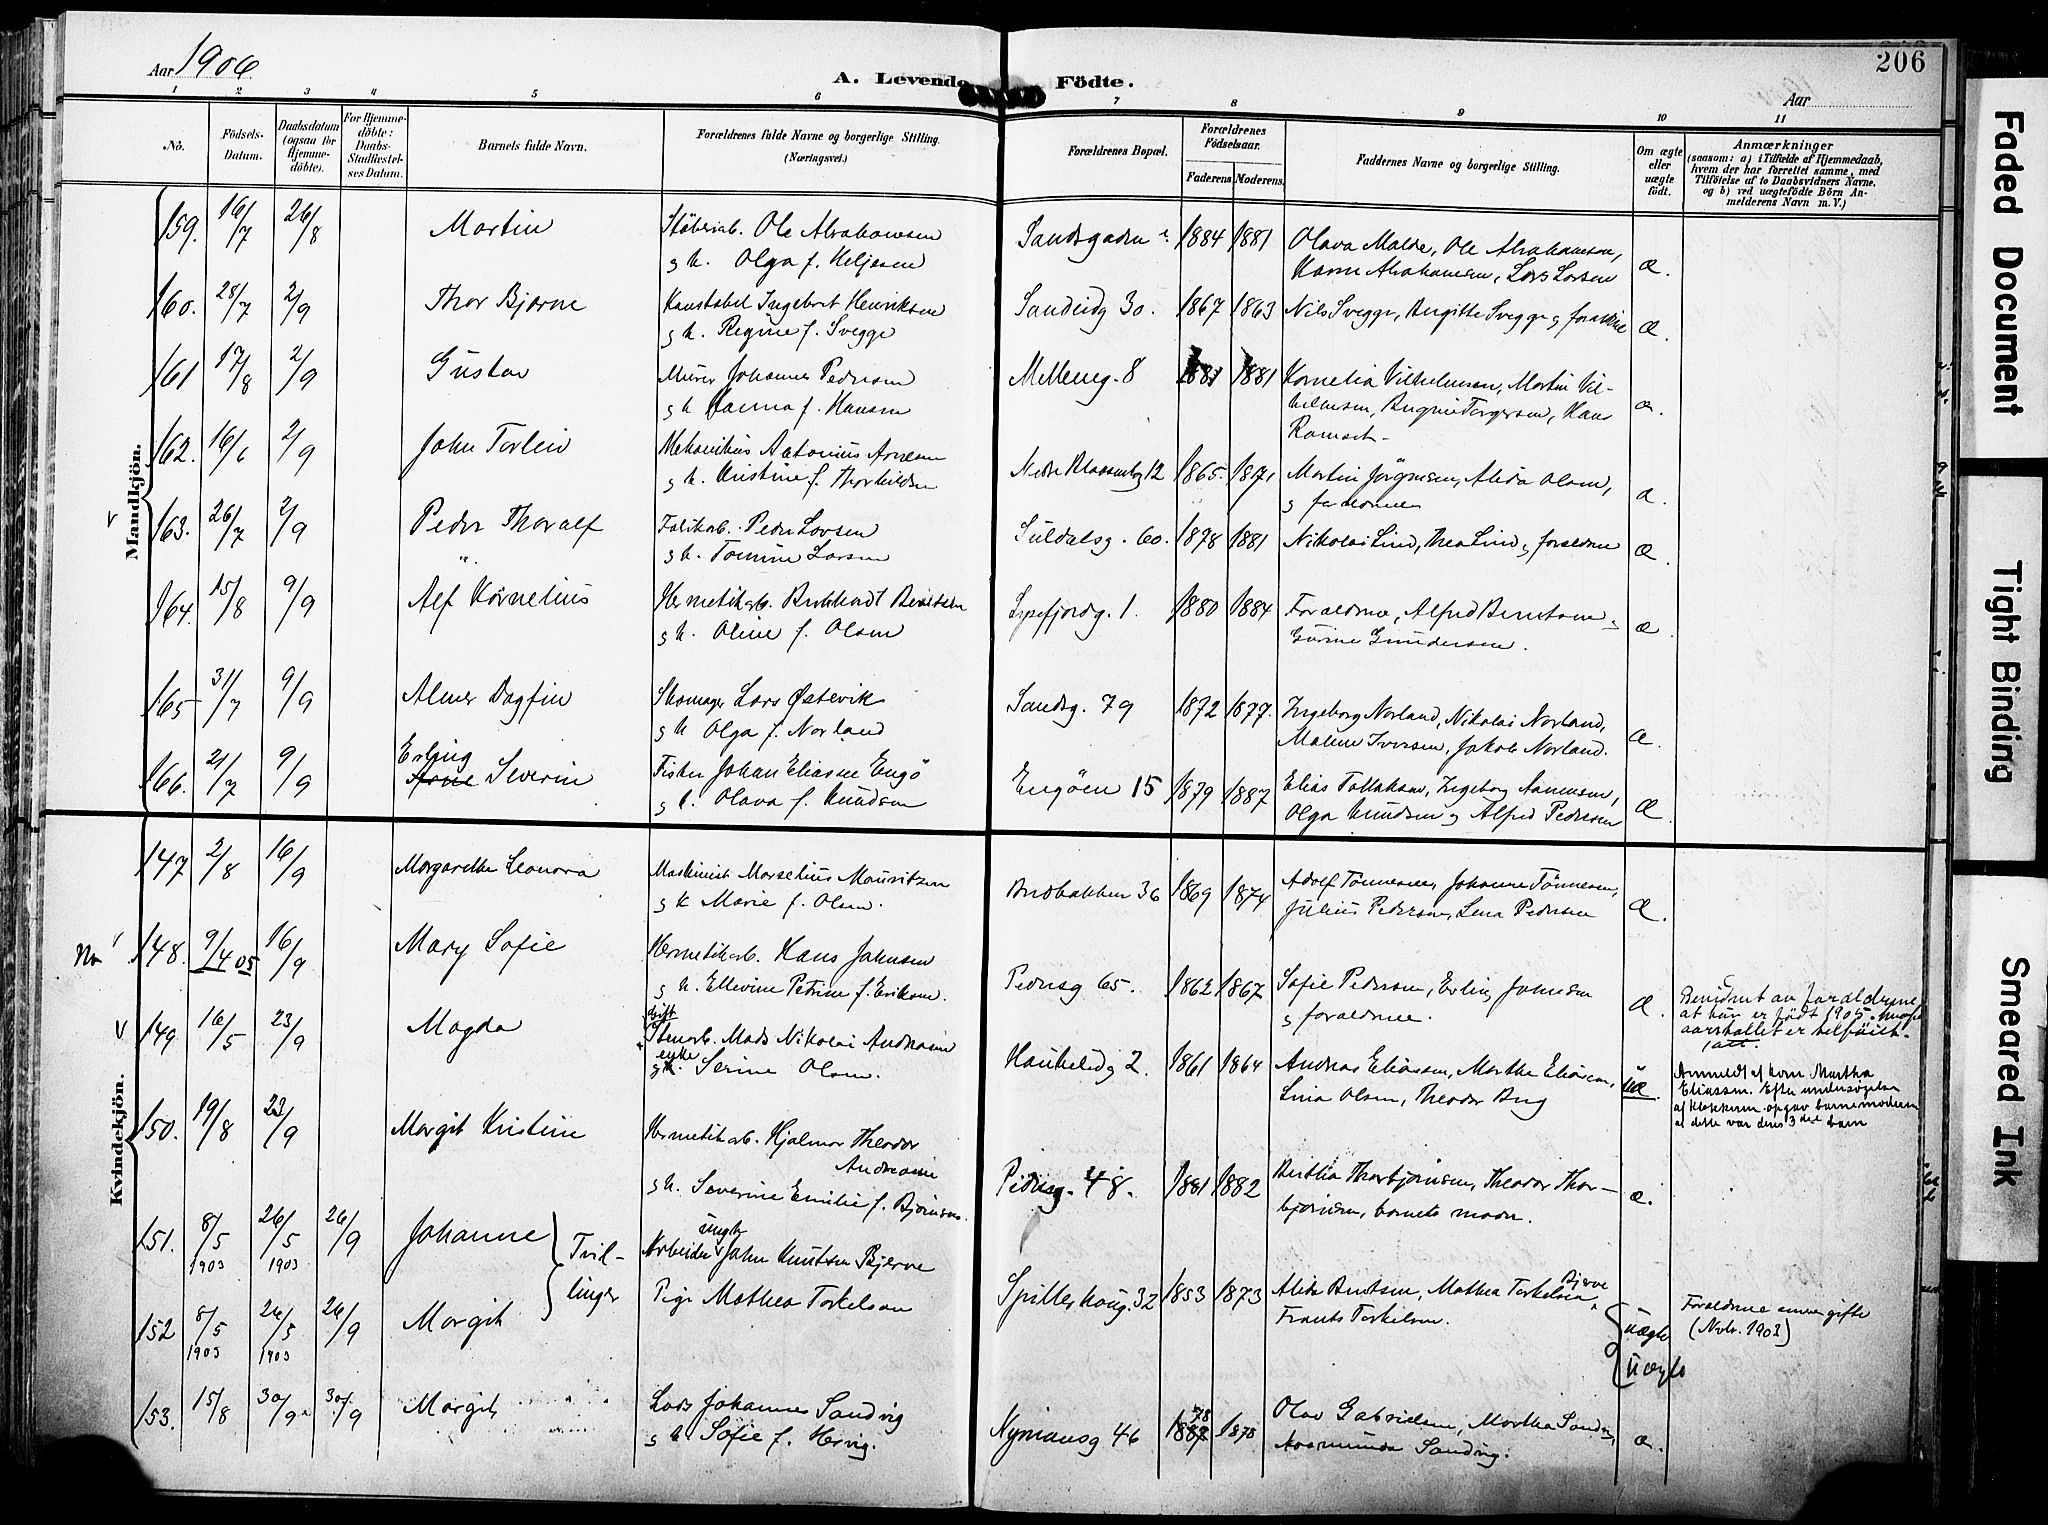 206
Aar 1906
A. Levende Födte.
Aar
1 2 3 4 5 6 7 8 9 10 11
No.
Födsels-Datum.
Daabsdatum (ogsaa for Hjemmedöbte).
For Hjemmedöbte: Daabs-Stadfæstelses Datum.
Barnets fulde Navn.
Forældrenes fulde Navne og borgerlige Stilling. (Næringsvei.)
Forældrenes Bopæl.
Forældrenes Födselsaar.
Faderens. Moderens.
Faddernes Navne og borgerlige Stilling.
Om ægte eller uægte födt.
Anmærkninger
(saasom: a) i Tilfælde af Hjemmedaab, hvem der har forrettet samme, med Tilföielse af to Daabsvidners Navne, og b) ved uægtefödte Börn Anmelderens Navn m. V.)
Mandkjön.
159. 16/7 26/8 Martin Stöberiarb. Ole Abrahamsen Sandsgaden 1884 1881 Olava Malde, Ole Abrahamsen, æ.
g h. Olga f. Heljesen Hanne Abrahamsen, Lars Larsen
160. 28/7 2/9 Thor Bjarne Konstabel Ingebret Henriksen Sandeidg 30. 1867 1863 Nils Svegge, Birgitte Svegge g forældrene æ.
g h. Regine f. Svegge
161 17/8 2/9 Gustav Murer Johannes Pedersen Mølleng. 8 1881 1881 Kornelia Vilhelmsen, Martin Vil- æ.
g h Hanna f. Hansen helmsen, Torgersen, Hans
162. 16/6 2/9 John Torleiv Mekanikus Antonius Arnesen Nedre 12 1865. 1871 Martin Jörgensen, Alida Olsen, æ.
g h. Kristine f. Thorkildsen g forældrene
163. 26/7 2/9 Peder Thoralf Fabrikarb. Peder Larsen Suldalsg. 60. 1878 1881 Nikolai Lind, Thea Lind g forældrene æ.
g h. Tomine Larsen
164. 15/8 9/9 Alf Kornelius Hermetikarb. Berntsen Lysefjordg. 1. 1880 1884 Forældrene, Alfred Berntsen g æ.
g h. Oline f. Olsen Gurine Gundersen.
165 31/7 9/9 Almer Dagfin Skomager Lars Østevik Sandsg. 79 1872 1877. Ingeborg Norland, Nikolai Norland, æ.
g h Olga f. Norland Malene Iversen, Jakob Norland.
166. 21/7 9/9 Erling Arne Severin Fisker Johan Eliasen Engö Engöen 15 1879 1887 Elias Tollaksen, Ingeborg Aanensen, æ.
g h. Olava f. Knudsen Olga Knudsen g Alfred Pedersen
Kvindekjön.
147 2/8 16/9 Margarethe Leonora Maskinist Marselius Mauritzen 36 1869 1874 Adolf Tönnesen, Johanne Tönnesen, æ.
g h Marie f. Olsen. Julius Pedersen, Lena Pedersen
148. 9/4 05 16/9 Mary Sofie Hermetikarb. Hans Johnsen Pedersg 65. 1862 1867 Sofie Pedersen, Erling Johnsen æ.
g h. Ellevine Petrine f. Eriksen. g forældrene.
Bevidnet av forældrene, at hun er födt 1905. aarstallet er tilföiet.
149 16/5 23/9 Magda Stenarb. Mads Nikolai Andreasen Haukelidg 2. 1861 1864 Andreas Eliassen, Martha Eliassen, uæ.
enke Serine Olsen. Lina Olsen, Theodor Berg
Anmeldt af kone Martha
Eliassen. Efter undersøgelse
af klokkeren opgav barnemoderen
at dette var deres 3die barn
150. 19/8 23/9 Margit Kristine Hermetikarb. Hjalmar Theodor Andreasen Pedersg. 48. 1881 1882 Bertha Thorbjörnsen, Theodor Thor- æ.
g h. Severine Emilie f. Björnsen. björnsen, barnets moder.
151. 8/5 1903 26/5 1903 26/9 Johanne Tvil- Arbeider ungk John Knutsen Bjerve
152 8/5 1903 26/5 1903 26/9 Margit linger Pige Mathea Torkelsen Spilderhaug. 32 1853 1873 Alida Berntsen, Mathea Torkelsen Bjerve, uægte
Frants Torkelsen. uægte
Forældrene ennu gifte
(Novbr. 1903)
153. 15/8 30/9 30/9 Margit Lars Johannes Sandvig Nymansg 46 1882 78 1878 Olav Gabrielsen, Martha Sandvig, æ.
g h Sofie f. Hervig. Rasmine Sandvig.
Faded Document
Tight Binding
Smeared Ink